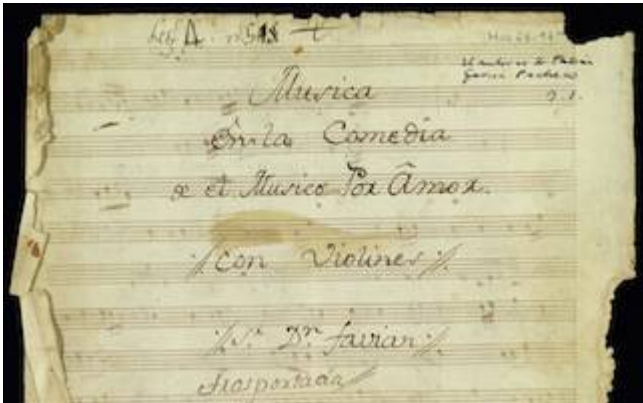 Legº A. nº 518
Mus 61-9
El autor es D. Fabián
García Pacheco
Musica
En la Comedia
de el Musico Por Âmor.
:/con Violines:/.
:/Sr. Dn. favian:/.
trasportada//